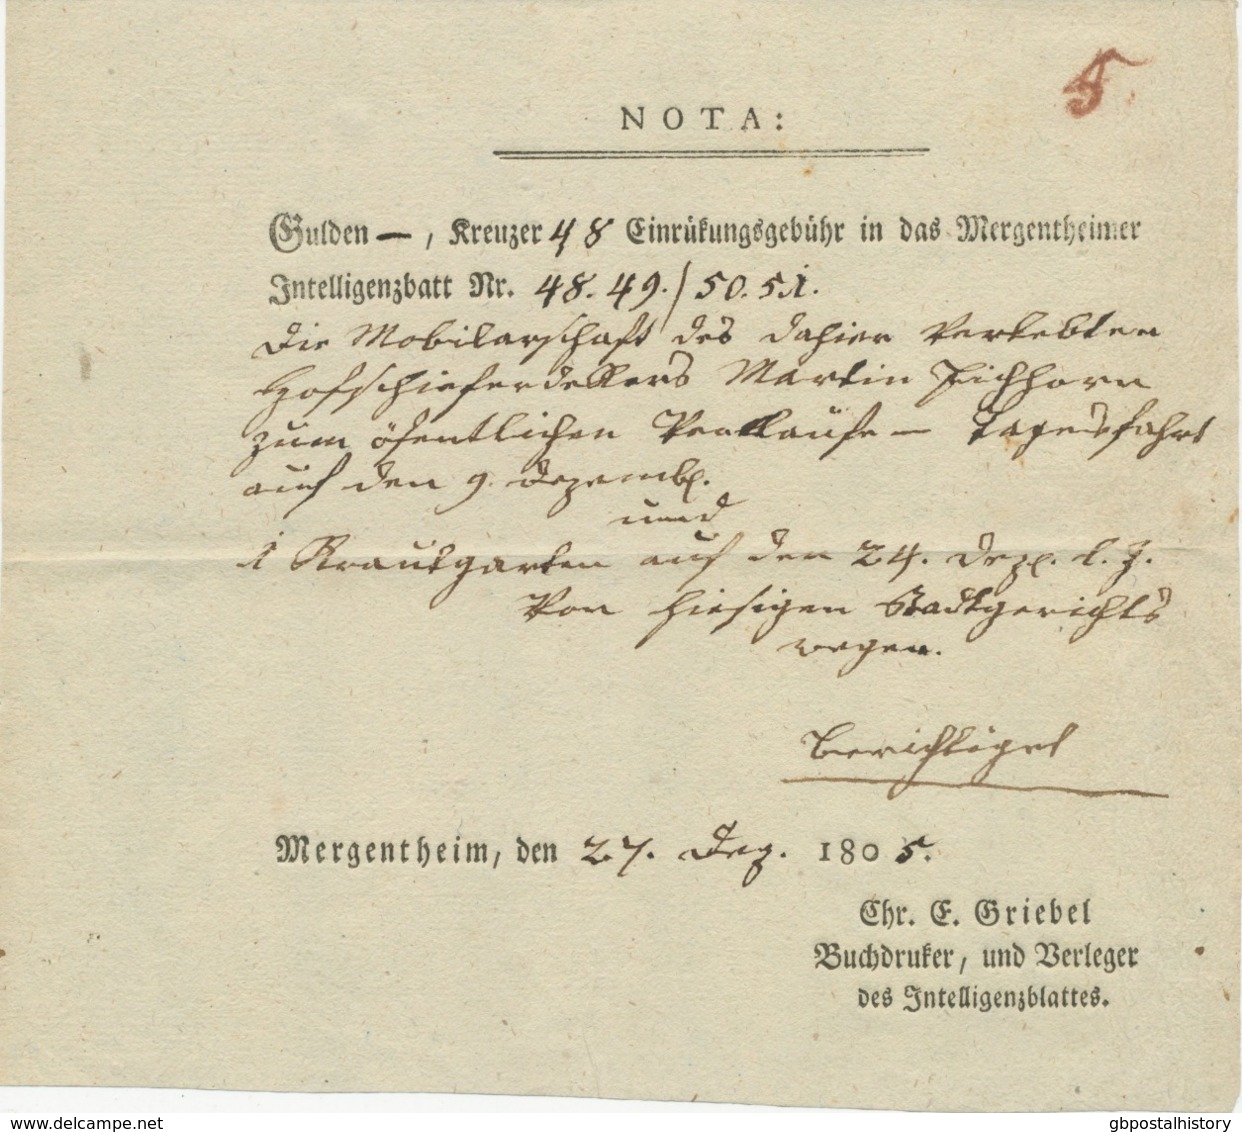 5
NOTA:
Gulden —, Kreuzer 48 Einrükungsgebühr in das Mergentheimer
Intelligenzbatt Nr. 48. 49./50. 51.
die Mobilarschaft des dahier verlebten
Hofschieferdekers Martin Eichhorn
zum öfentlichen Verkaufe — Tagesfahrt
auf den 9. Dezemb.
und
1 Krautgarten auf den 24. Dez. l. J.
Von hiesigen Stadtgerichts
wegen.
Berichtiget
Mergentheim, den 27. Dez. 1805.
Chr. E. Griebel
Buchdruker, und Verleger
des Intelligenzblattes.
delcampe.net
gbpostalhistory